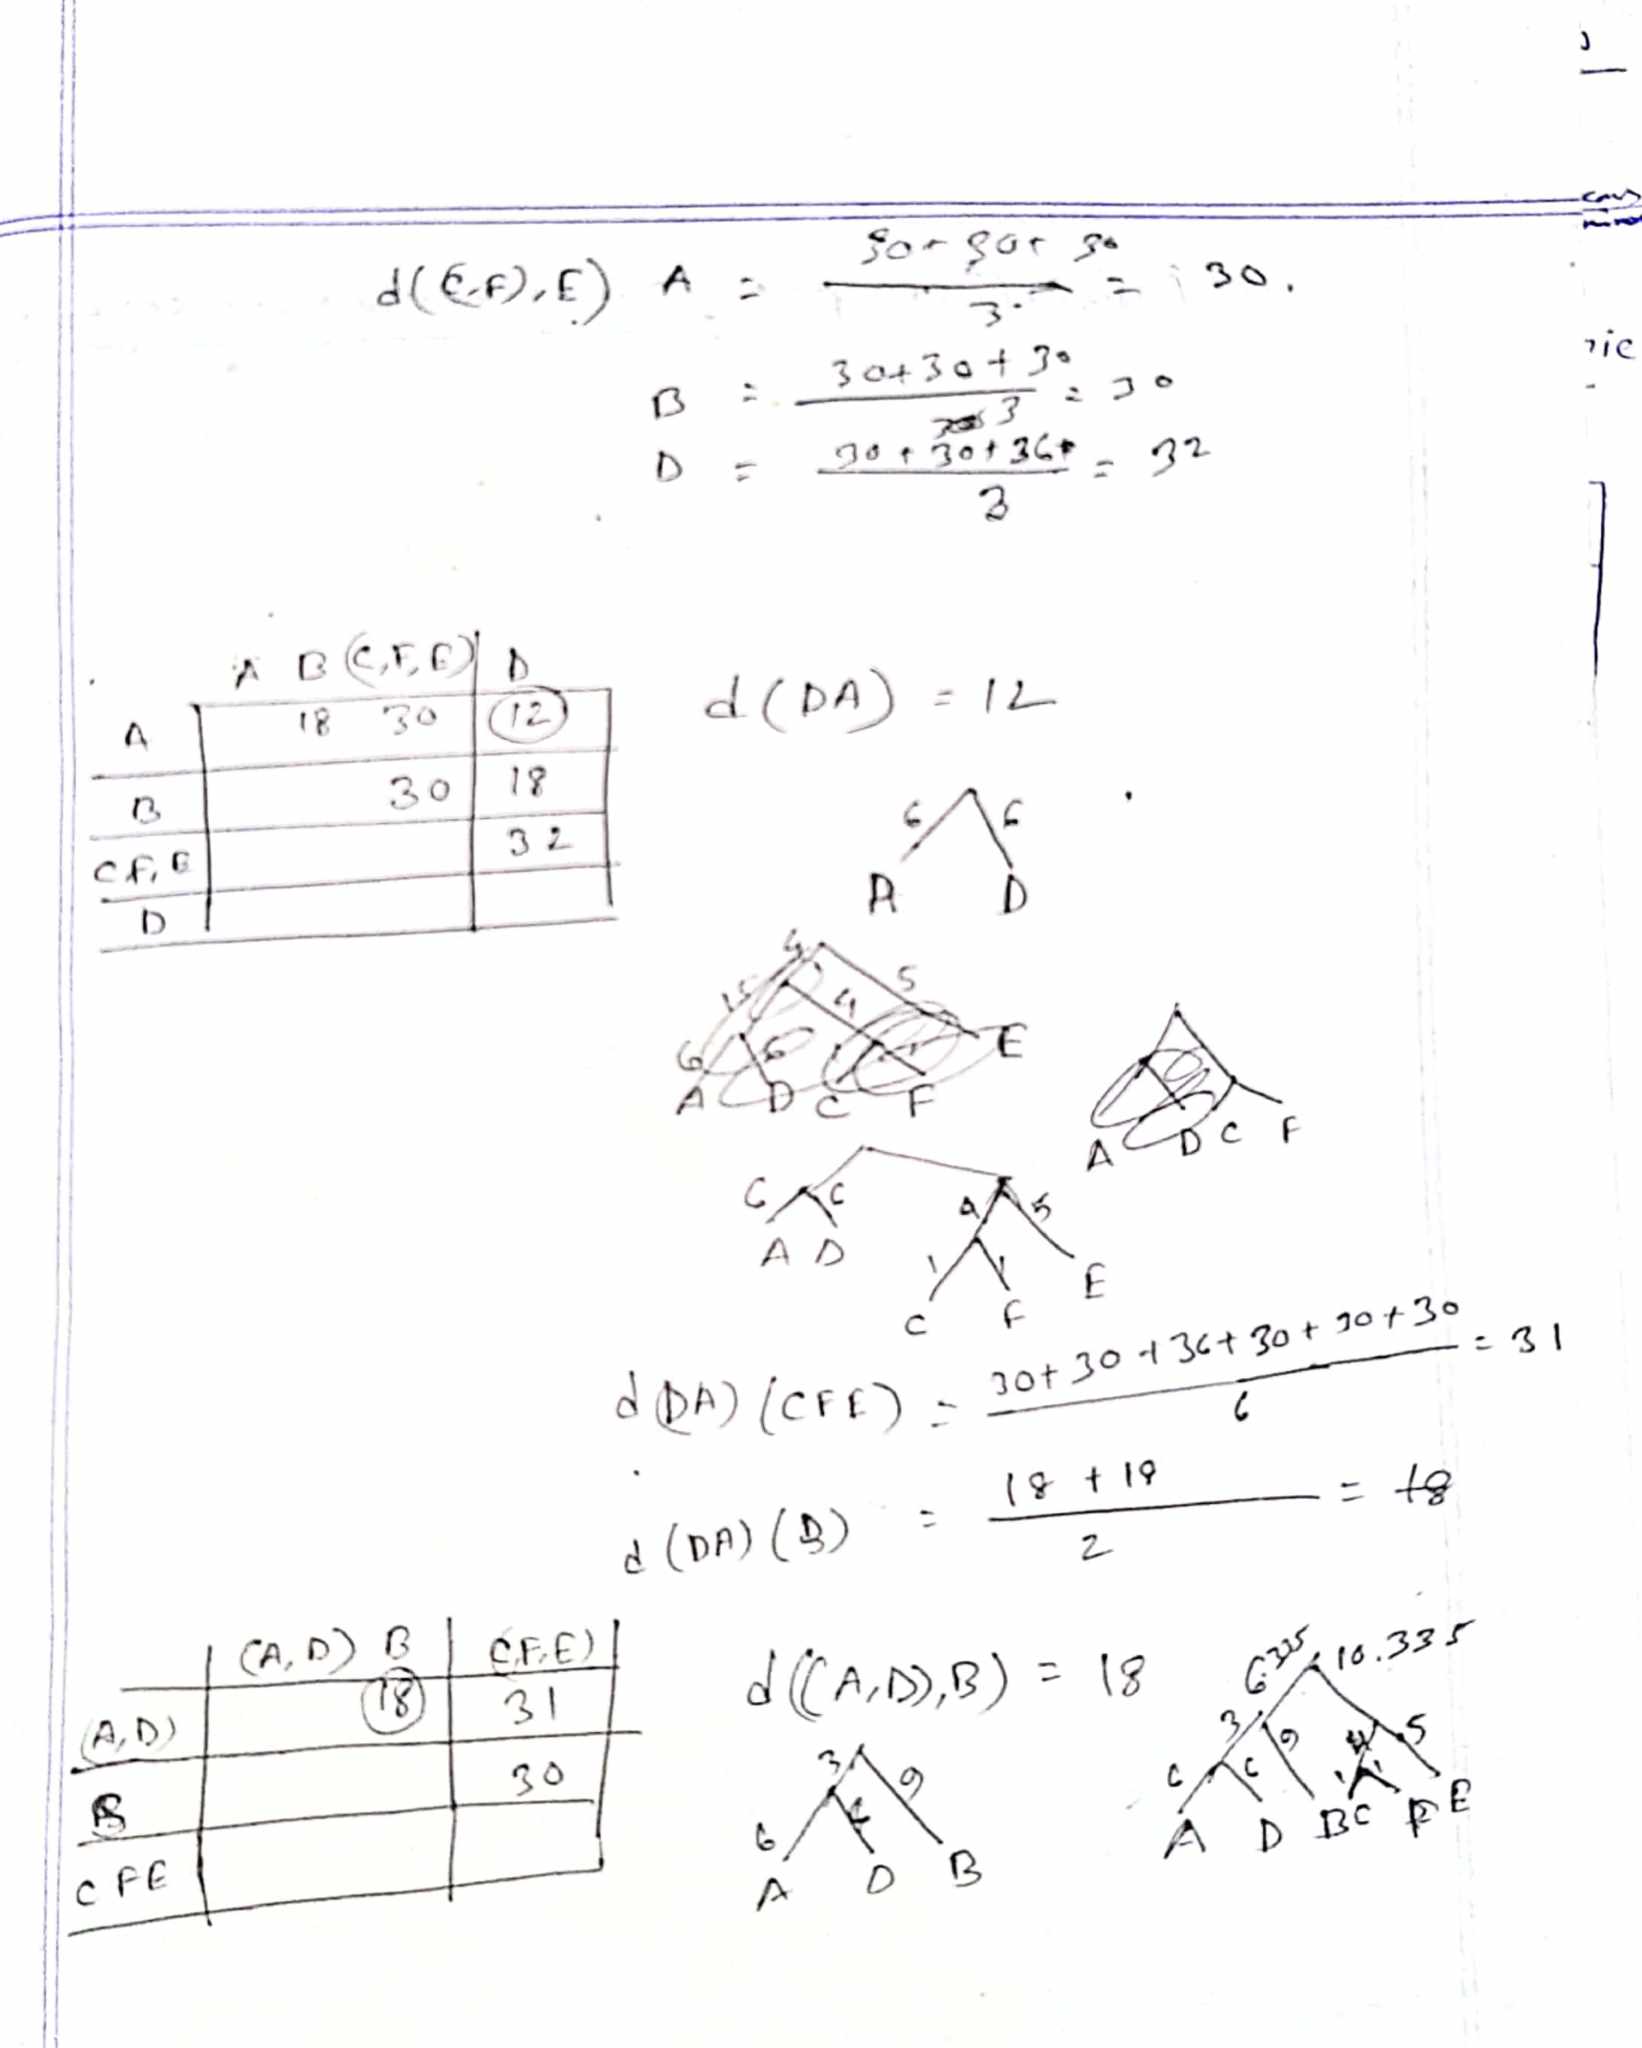 d(C,F),E) A = 30+30+30 / 3 = 30.
B = 30+30+30 / 3 = 30
D = 30+30+36 / 3 = 32
A B (C,F,E) D
A 18 30 12
B 30 18
C F, E 32
D
d(DA) = 12
6 6
A D
4 5
15 4
6 6 E
A D C F
A D C F
6 6 4 5
A D 1 1 E
C F
d(DA)(CFE) = 30+30+36+30+30+30 / 6 = 31
d(DA)(B) = 18+18 / 2 = 18
(A,D) B (C,F,E)
(A,D) 18 31
B 30
C F E
d((A,D),B) = 18
3 9
6 6
A D B
6.335 10.335
3 9 4 5
6 6 1 1
A D B C F E